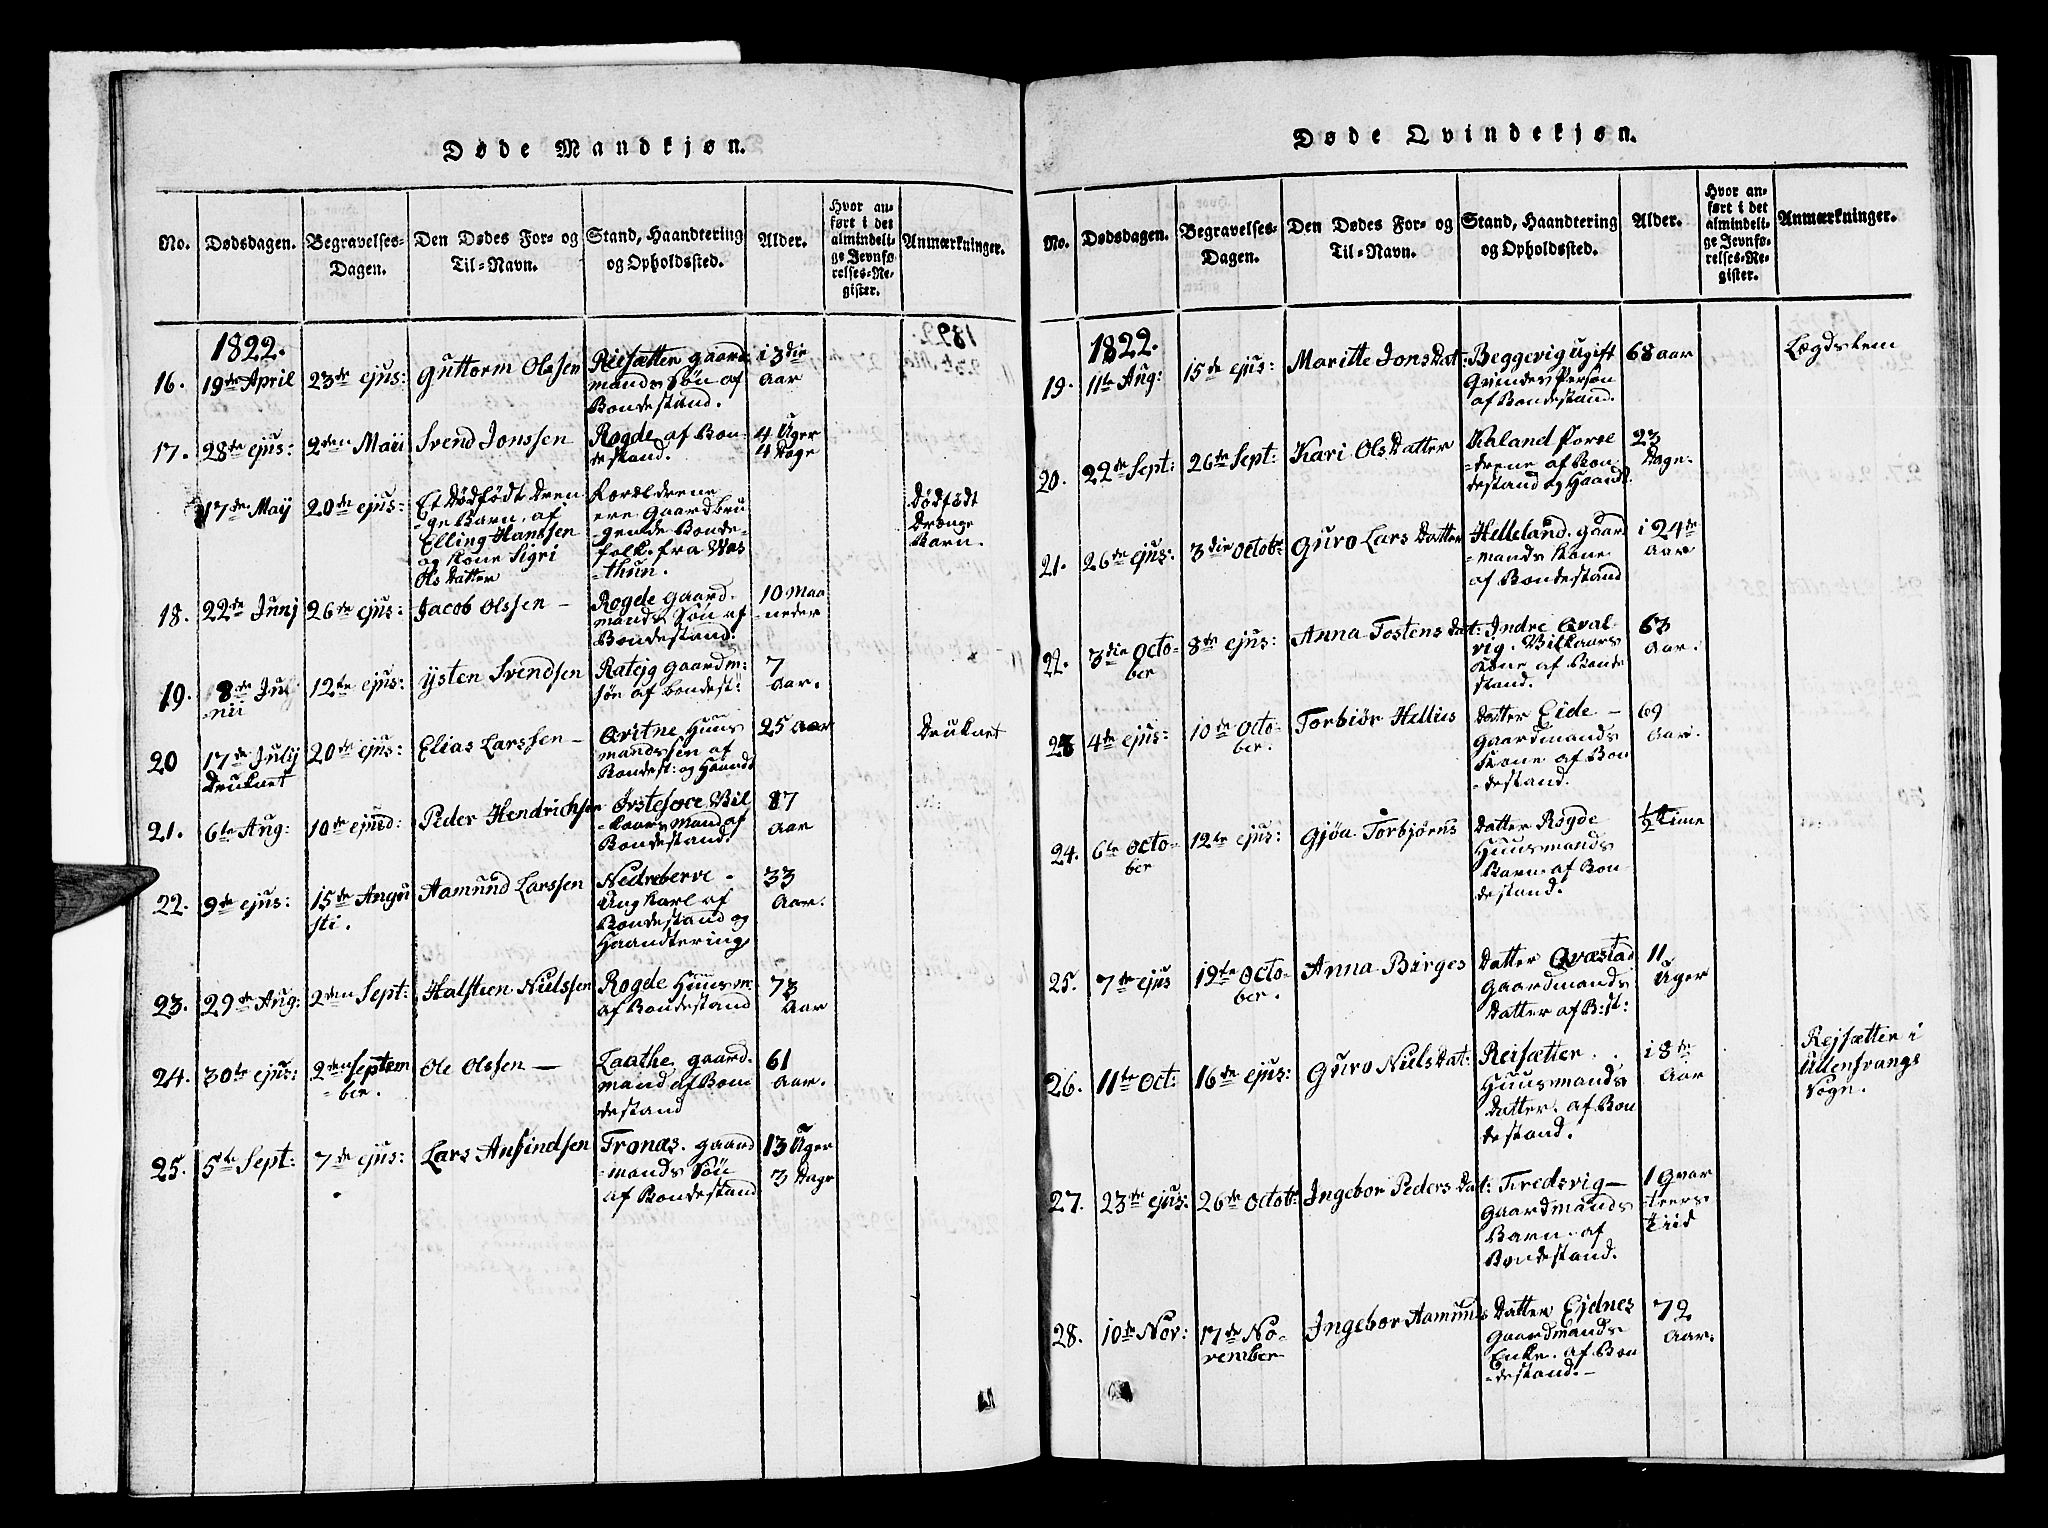 Døde Mandkjøn.
No.
Dødsdagen.
Begravelses-
Dagen.
Den Dødes For- og
Til-Navn.
Stand, Haandtering
og Opholdssted.
Alder.
Hvor an-
ført i det
almindeli-
ge Jevnfø-
relses-Re-
gister.
Anmærkninger.
1822.
16.
19de April
23de ejus:
Guttorm Olssen
Reisætter gaard-
mands Søn af
Bondestand.
i 3die
Aar
17.
28de ejus:
2den Maii
Svend Jonssen
Rogde af Bon-
destand.
4 Uger
4 Dage
17de Maÿ
20de ejus:
Et Dødfødt Dren
-ge Barn, af
Elling Hanssen
og Kone Sigri
Ols Datter
Forældrene
ere Gaardbru
-gende Bonde-
folk fra Vas
-thun.
Dødfødt
Drænge
Barn.
18.
22de Junj
26de ejus:
Jacob Olssen –
Rogde Gaard-
mands Søn af
Bondestand.
10 Maa
-neder
19.
8de
nii
12te ejus:
ÿsten Svendsen
Rateig Gaardm:
søn af bondest:
7
Aar.
20
17de Julÿ
Druknet
20de ejus:
Elias Larssen –
Qvitne Huus
mandssøn af
Bondest: og Haandt
25 Aar
Druknet
21.
6te Aug:
10de ejusd:
Peder Hendrichsen
Ørstefoce Vil
-kaars Mand af
Bondestand.
87
Aar
22.
9de ejus:
15de Augu
sti.
Aamund Larssen
Nedreberve –
Ung Karl af
Bondestand og
Haandtering
33
Aar.
23.
29de Aug:
2den Sept:
Halsten Nielssen
Rogde Huusm:
af Bondestand
73
Aar
24.
30te ejus:
2den Septem
-ber.
Ole Olssen –
Laathe gaard-
mand af Bon
destand
61
Aar.
25.
5te Sept:
7de ejus:
Lars Ansindsen
Tronæs. gaard
-mands Søn
af Bondestand
13 Uger
3 Dage
Døde Qvindekjøn.
No.
Dødsdagen.
Begravelses-
Dagen.
Den Dødes For- og
Til-Navn.
Stand, Haandtering
og Opholdssted.
Alder.
Hvor an-
ført i det
almindeli-
ge Jevnfø-
relses-Re-
gister.
Anmærkninger.
1822.
19.
11te Aug:
15de ejus:
Maritte Jons Dat:
Beggevig ugift
Qvindes Person
af Bondestand.
68 aar
Lægdslem
20.
22de Sept:
26de Sept:
Kari Ols Datter
Kaland Foræl
-drene af Bon
destand og Haandt.
23
Dage.
21.
26de ejus:
3die Octobr
Guro Lars Datter
Helleland. gaard
-mands Kone
af Bondestand
i 24de
Aar
22.
3die Octo-
ber
8de ejus:
Anna Tostens Dat:
Indre Qval-
vig. Vilkaars
Kone af Bonde
stand.
63
Aar.
23
4de ejus:
10de Octo-
ber.
Torbiør Hellies
Datter Eide –
Gaardmands
Kone af Bon
-destand.
69
Aar.
24.
6te Octo-
ber
12te ejus:
Gjøa Torbjørns
Datter Rogde
Huusmands
Barn af Bon-
destand.
1/2 time
25.
7de ejus
19te Octo-
ber.
Anna Børges
Datter Qvæstad
Gaardmands
Datter af B:st:
11
Uger
26.
11te Oct:
16de ejus:
Guro Niels Dat:
Reisætter
Huusmands
Datter. af Bon
destand.
i 8de
Aar
Rejsætter i
Ullensvangs
Sogn.
27.
23de ejus:
26de Octobr
Ingebor Peders Dat:
Tredsvig –
Gaardmands
Barn. af
Bondestand.
1 Qvar
-teers
Tiid
28.
10de Nov:
17de No-
vember
Ingebor Aamunds
Datter Ejdnes
Gaardmands
Enke. af Bon
-destand. –
72
Aar.